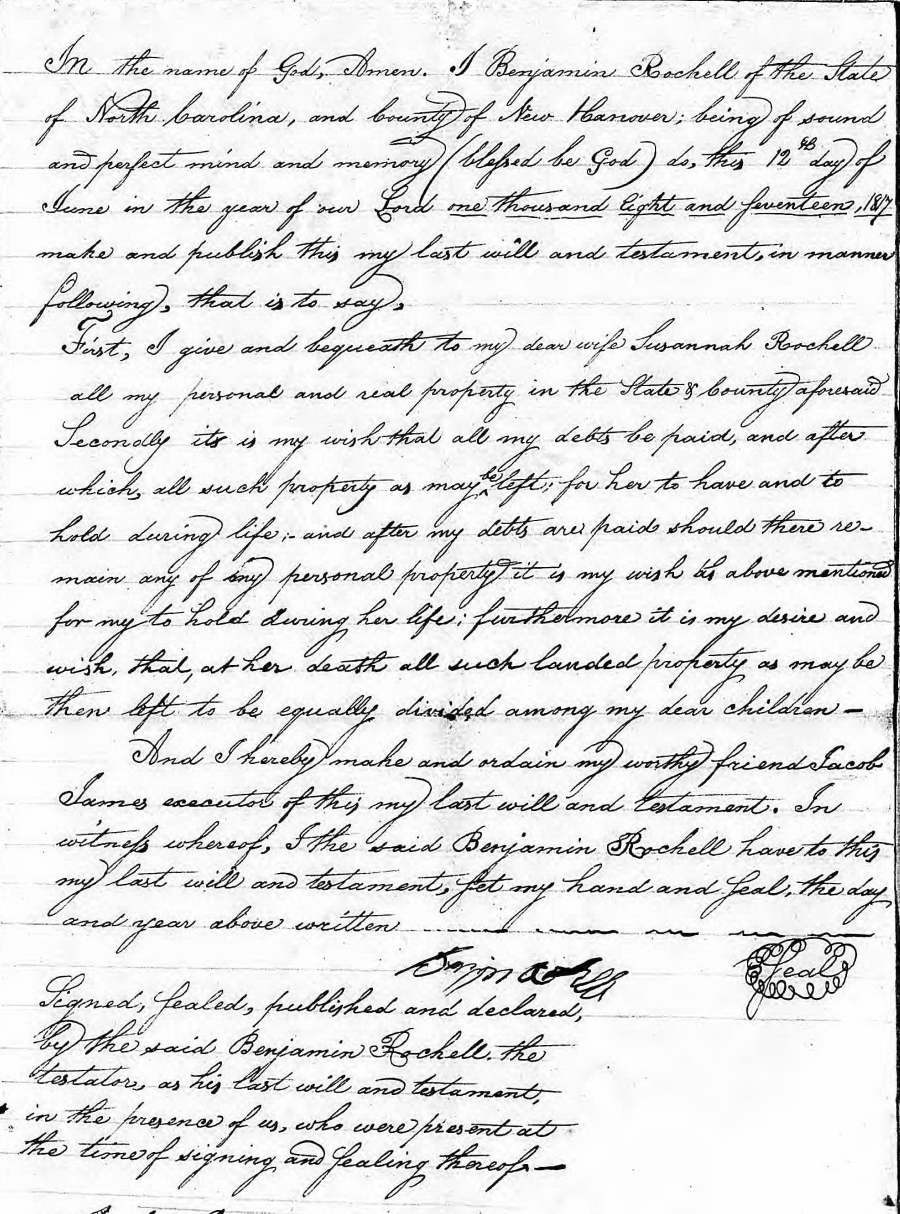 In the name of God, Amen. I Benjamin Rochell of the State
of North Carolina, and County of New Hanover; being of sound
and perfect mind and memory (blessed be God) do, this 12th day of
June in the year of our Lord one thousand Eight and Seventeen, 1817
make and publish this my last will and testament, in manner
following, that is to say,
First, I give and bequeath to my dear wife Susannah Rochell
all my personal and real property in the State & County aforesaid
Secondly its is my wish that all my debts be paid, and after
which, all such property as may be left; for her to have and to
hold during life;- and after my debts are paid should there re-
main any of my personal property it is my wish as above mentioned
for my to hold during her life; furthermore it is my desire and
wish, that, at her death all such landed property as may be
then left to be equally divided among my dear children -
And I hereby make and ordain my worthy friend Jacob
James executor of this my last will and testament. In
witness whereof, I the said Benjamin Rochell have to this
my last will and testament, Set my hand and Seal, the day
and year above written
Benjn Rochell
Seal
Signed, Sealed, published and declared,
by the said Benjamin Rochell, the
testator, as his last will and testament,
in the presence of us, who were present at
the time of signing and Sealing thereof -